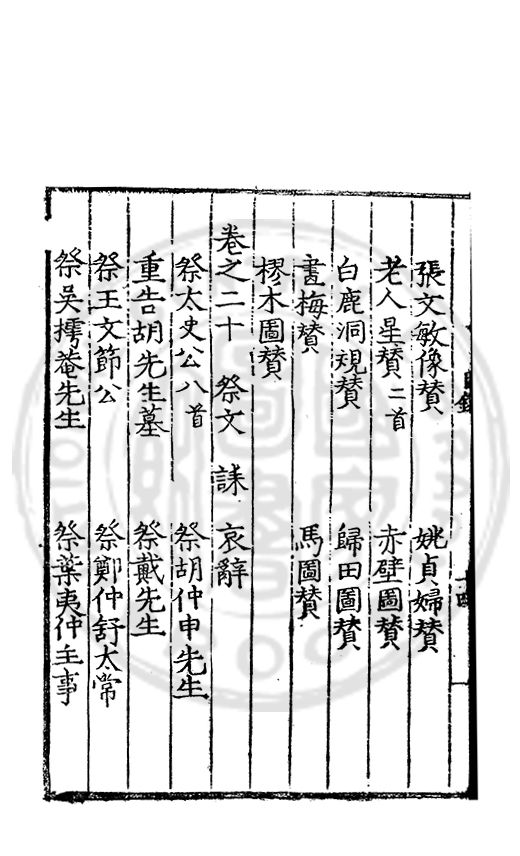 張文敏像贊　姚貞婦贊
老人星贊二首　赤壁圖贊
白鹿洞規贊　歸田圖贊
畫梅贊　馬圖贊
樛木圖贊
卷之二十　祭文　誄　哀辭
祭太史公八首　祭胡仲申先生
重告胡先生墓　祭戴先生
祭王文節公　祭鄭仲舒太常
祭吳樗菴先生　祭葉夷仲主事